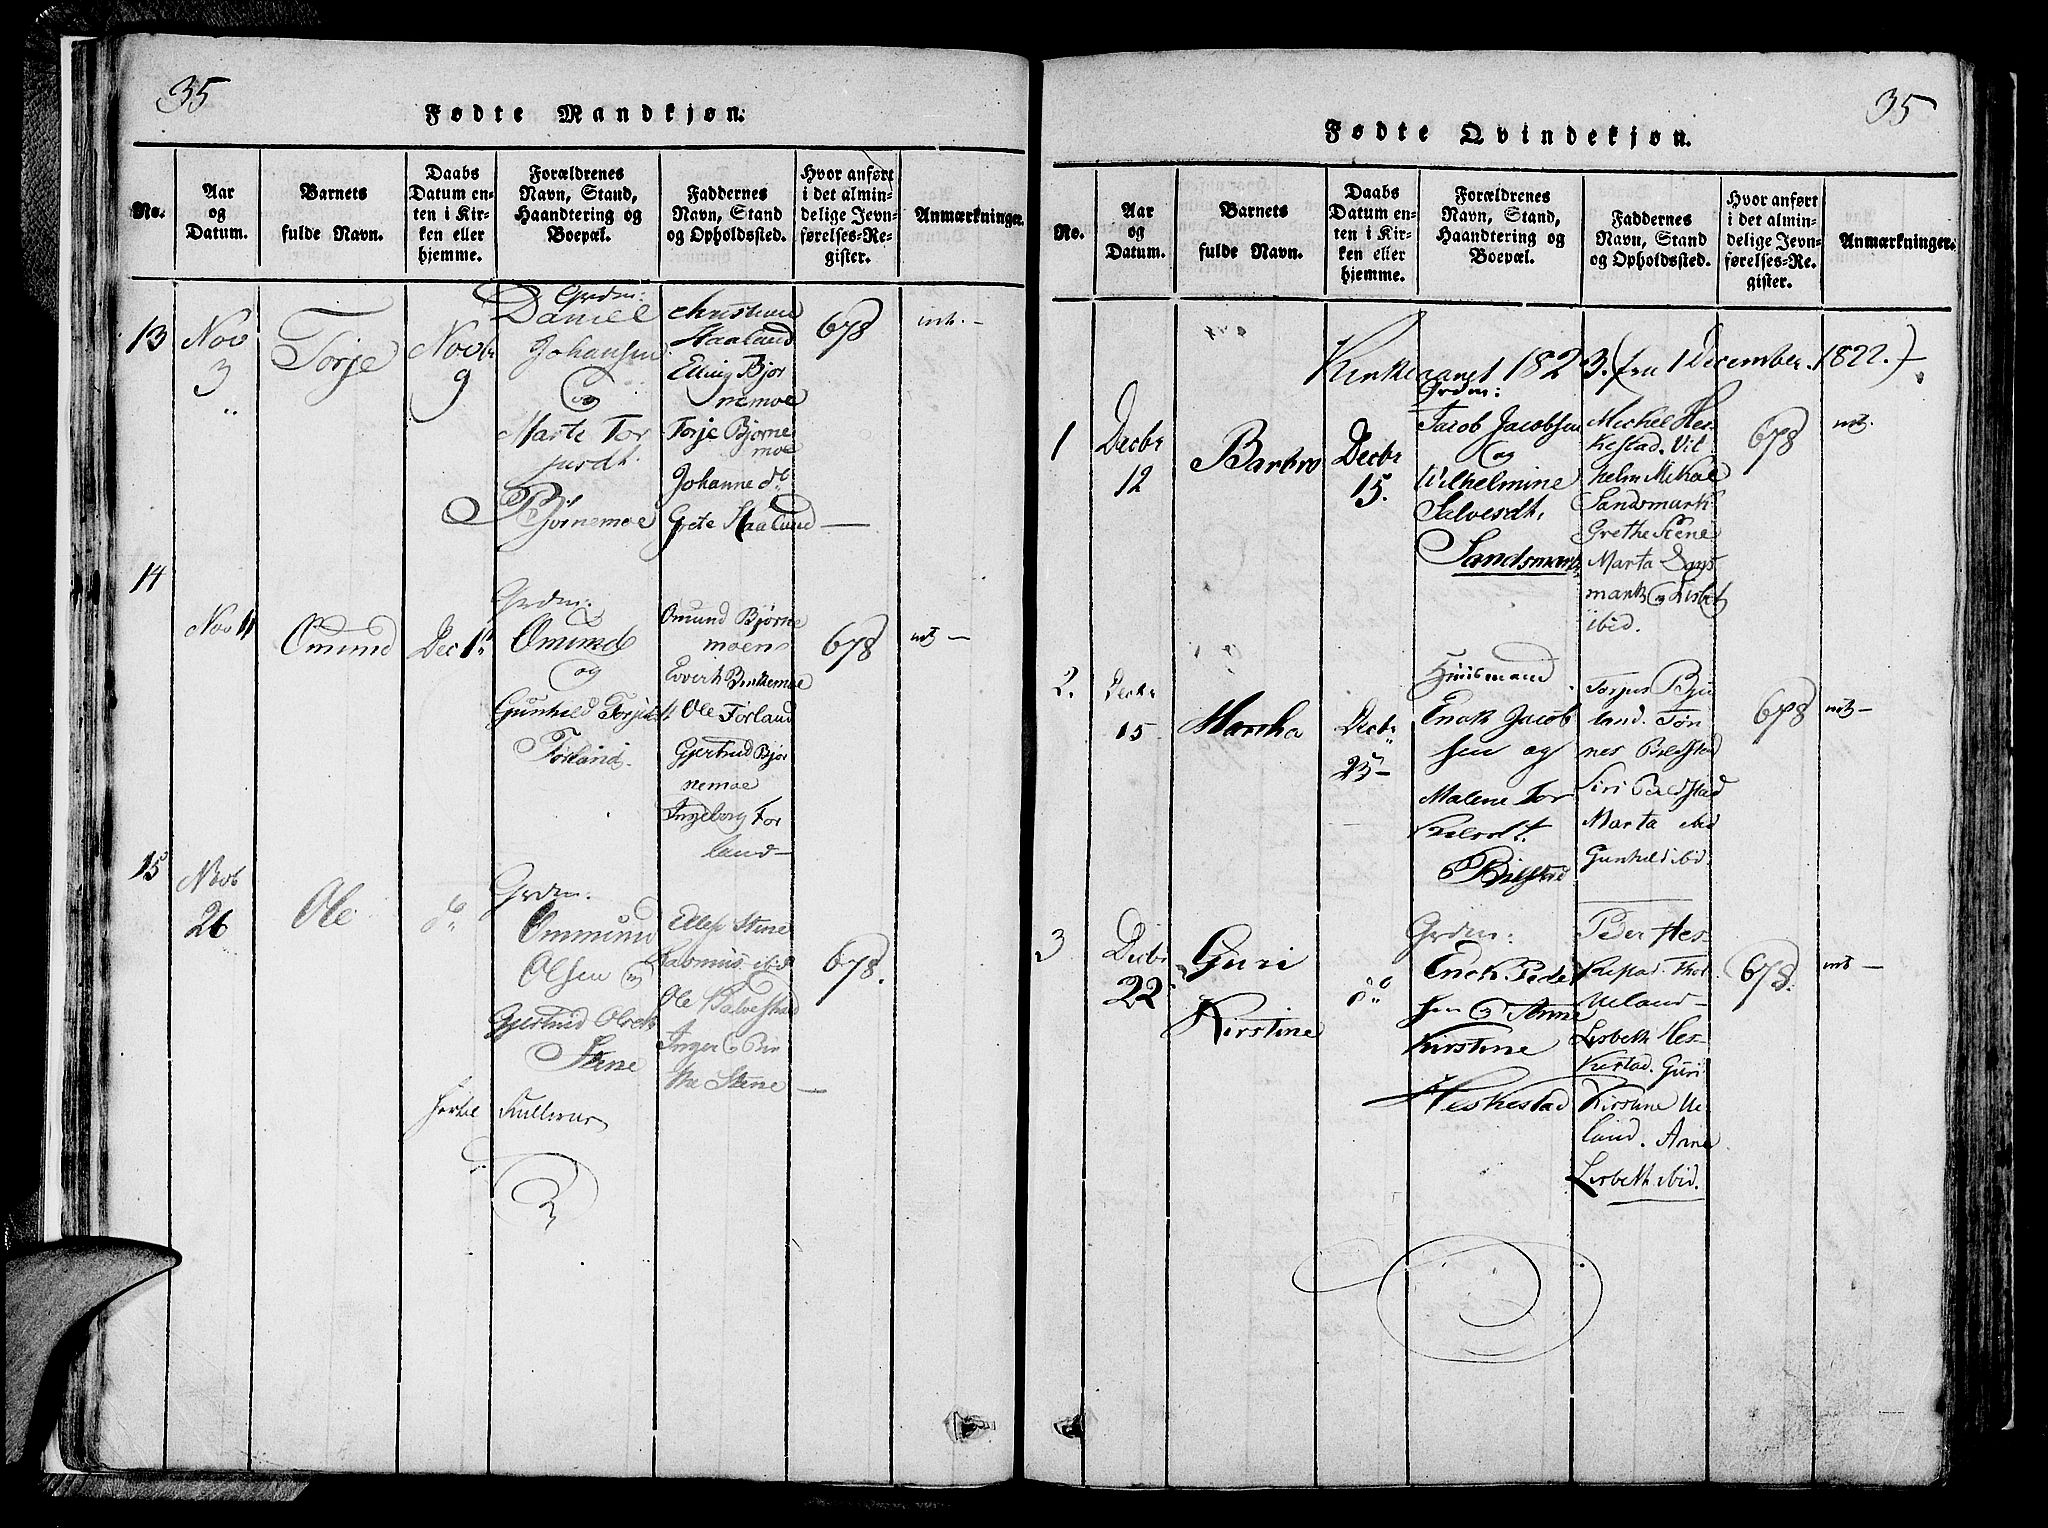 35
Fødte Mandkjøn:
No.
Aar
og
Datum.
Barnets
fulde Navn.
Daabs
Datum en-
ten i Kir-
ken eller
hjemme.
Forældrenes
Navn, Stand,
Haandtering og
Boepæl.
Faddernes
Navn, Stand
og Opholdssted.
Hvor anført
i det almin-
delige Jevn-
førelses-Re-
gister.
Anmærkninger.
13
Nov
3
Torje
Novbr
9
Grdm:
Daniel
Johansen
og
Marte Tor
jusdt.
Bjørnemoe
Christian
Haaland
Elling Bjor
nemoe
Torje Bjørne
moe
Johanne do
Grete Haaland
678
int. –
14
Nov 11
Omund
Dec 1
Grdm:
Omund
og
Gunhild Torjusdt.
Førland.
Omund Bjørne
moen
Evert Birkemoe
Ole Førland
Gjertrud Bjør
nemoe
Ingeborg For
land –
678
int –
15
Nov
26
Ole
do
Grdm:
Ommund
Olsen og
Gjertrud Olsdt
Stene
Ellef Stene
Rasmus ibid
Ole
Inger og Bir
the Stene –
678.
35
Fødte Qvindekjøn.
No.
Aar
og
Datum.
Barnets
fulde Navn.
Daabs
Datum en-
ten i Kir-
ken eller
hjemme.
Forældrenes
Navn, Stand,
Haandtering og
Boepæl.
Faddernes
Navn, Stand
og Opholdssted.
Hvor anført
i det almin-
delige Jevn-
førelses-Re-
gister.
Anmærkninger.
Kirkeaaret 1823. (fra 1 December. 1822.) –
1
Decbr
12
Barbro
Decbr
15.
Grdm:
Jacob Jacobsen
og
Wilhelmine
Salvesdt.
Sandsmark
Michel Hes
kestad. Vil
helm Mikal
Sandsmark
Grethe Stene
Marta Sans
mark og Lisbet
ibid.
678
int.
2.
Decbr
15
Martha
Decbr
25 –
Huusmand
Enok Jacob
sen og
Malene Tor
kelsdt.
Birkestad
Torjus Bju
land. Tøn
nes
Siri
Marta ibid
Gunhild ibid.
678
int –
3
Decbr
22
Guri
Kirstine
do
Grdm:
Enok Peder
sen og Anne
Kirstine
Heskestad
Peder Hes-
kestad. Thor
Ueland –
Lisbeth Hes-
kestad. Guri
Kirstine Ue
land. Anne
Lisbeth ibid.
678.
int –